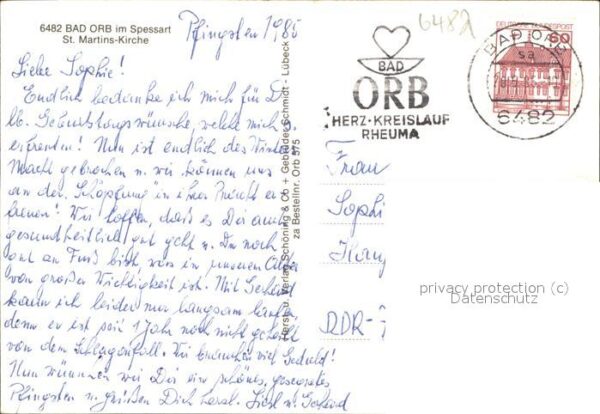 6482 BAD ORB im Spessart
St. Martins-Kirche
Pfingsten 1985
Liebe Sophie!
Endlich bedanke ich mich für D.
lb. Geburtstagswünsche, welche mich s.
erfreuten! Nun ist endlich des Winters
Macht gebrochen u. wir können uns
an der "Schöpfung" in ihrer Pracht er-
freuen! Wir hoffen, dass es Dir auch
gesundheitlich gut geht u. Du noch
gut an Fuß bist, was in unserem Alter
von großer Wichtigkeit ist. Mit Gerhard
kann ich leider nur langsam laufen,
denn er ist seit 1 Jahr noch nicht geheilt
von dem Schlaganfall. Wir brauchen viel Geduld!
Nun wünschen wir Dir ein schönes, gesegnetes
Pfingsten u. grüßen Dich herzl. Liesl u. Gerhard
Herst. u. Verlag Schöning & Co + Gebrüder Schmidt · Lübeck
za Bestellnr. Orb 575
6482
BAD
ORB
HERZ·KREISLAUF
RHEUMA
BAD ORB
sa
6482
DEUTSCHE BUNDESPOST
60
Frau
Sophi
DDR-
privacy protection (c)
Datenschutz